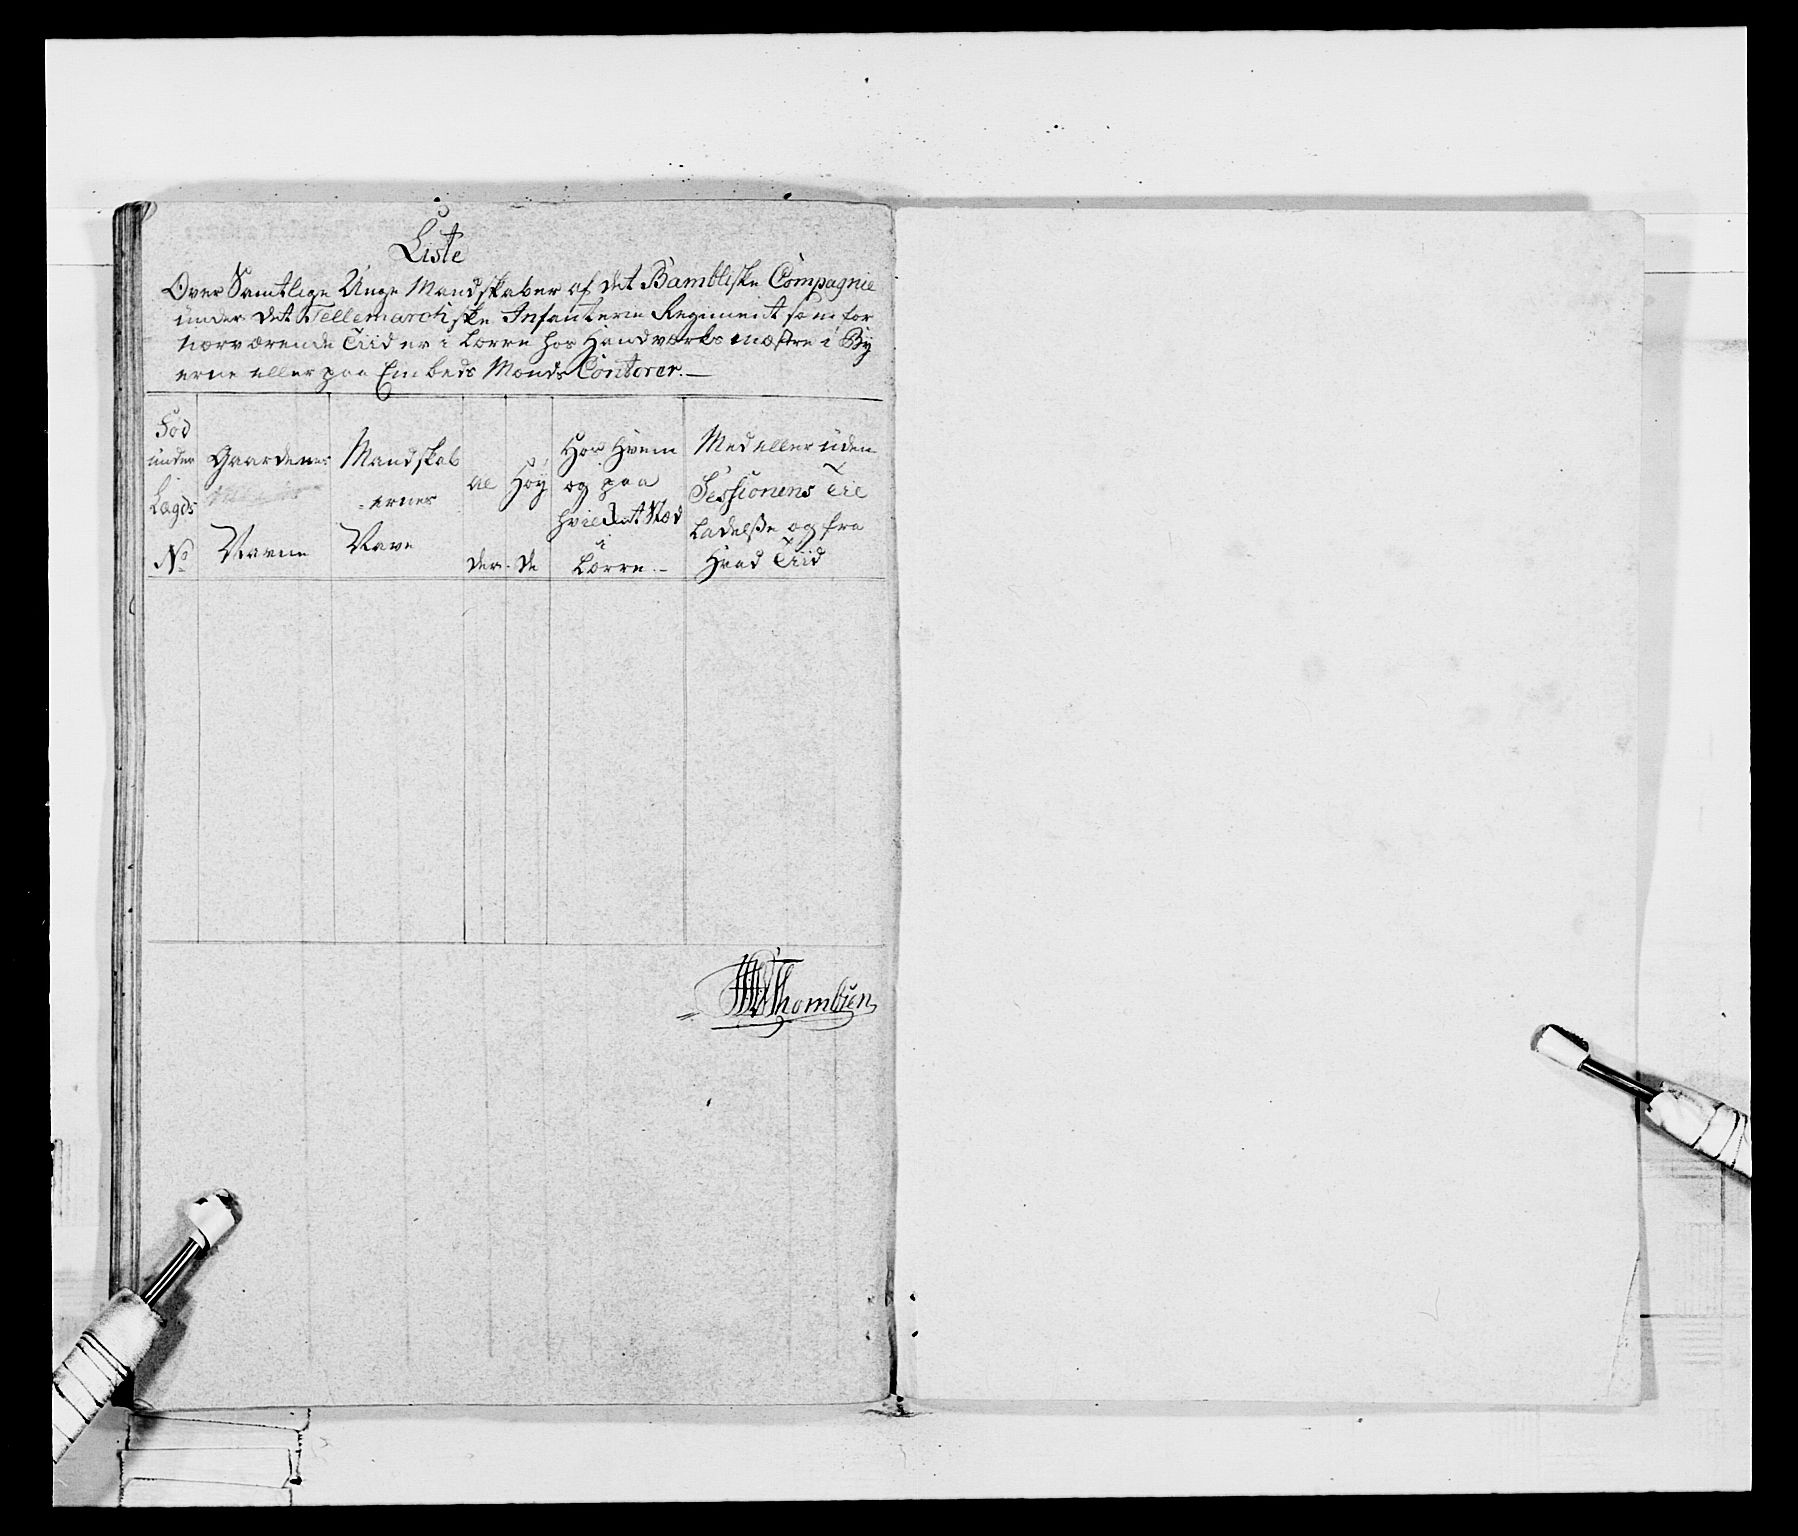 Liste
Over Samtlige Unge Mandskaber af det Bambliske Compagnie
under det Tellemarchske Infanterie Regiment som for
nærværende Tiid er i Lærre hos Handverks mestre i By
erne eller paa Embeds Mænds Contorer.—
Fød under Lægds No
Gaardenes Navne
Mandskab ernes Navn
Al der.
Høy de
Hos Hvem og paa hvilket Stæd i Lærre.–
Med eller uden Sessionens Til ladelße og fra Hvad Tiid
Thombsen